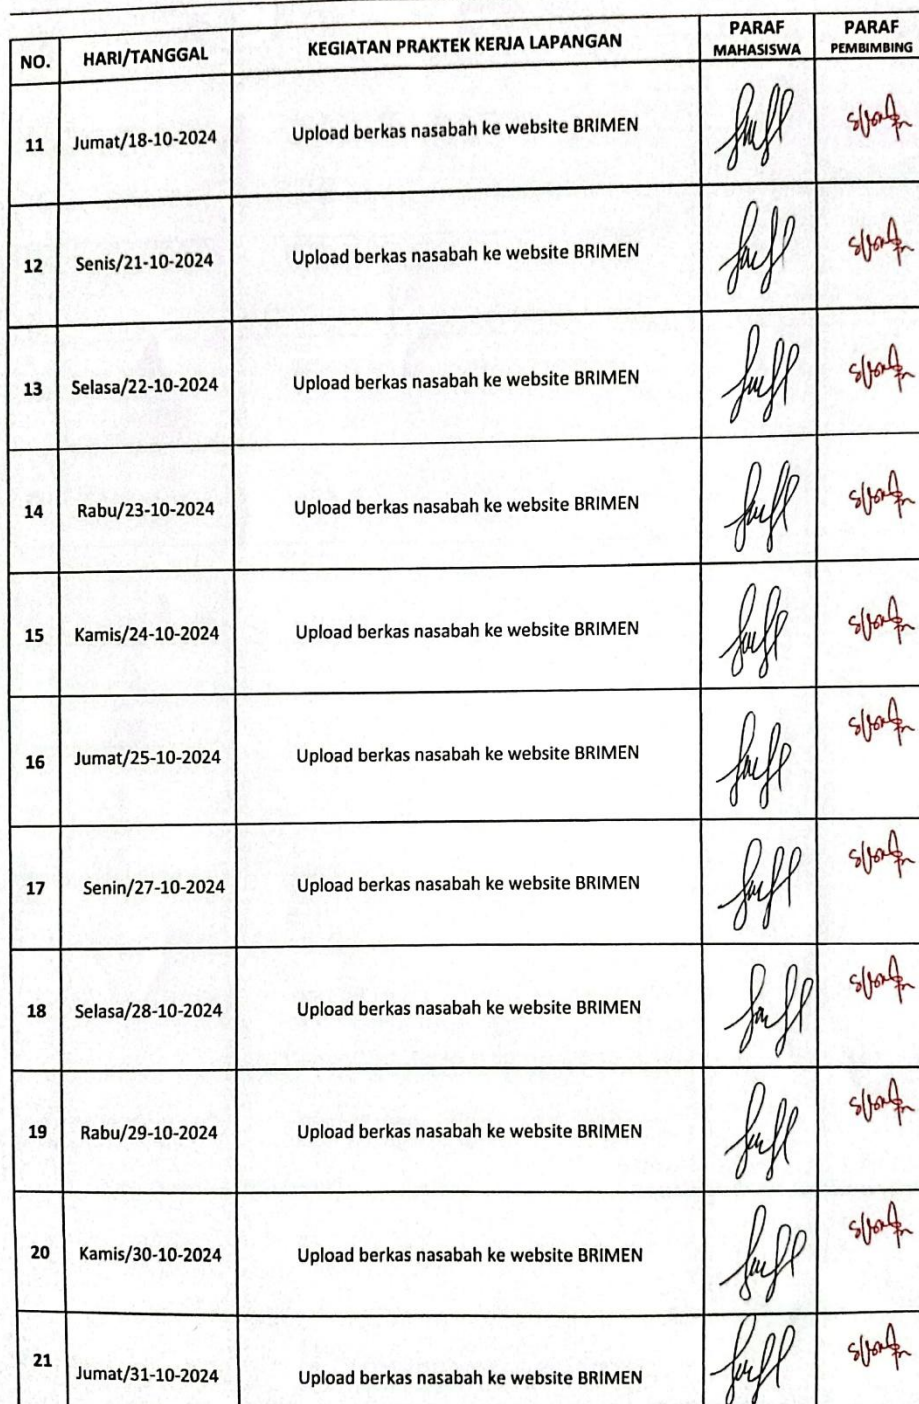 NO. HARI/TANGGAL KEGIATAN PRAKTEK KERJA LAPANGAN PARAF MAHASISWA PARAF PEMBIMBING
11 Jumat/18-10-2024 Upload berkas nasabah ke website BRIMEN
12 Senis/21-10-2024 Upload berkas nasabah ke website BRIMEN
13 Selasa/22-10-2024 Upload berkas nasabah ke website BRIMEN
14 Rabu/23-10-2024 Upload berkas nasabah ke website BRIMEN
15 Kamis/24-10-2024 Upload berkas nasabah ke website BRIMEN
16 Jumat/25-10-2024 Upload berkas nasabah ke website BRIMEN
17 Senin/27-10-2024 Upload berkas nasabah ke website BRIMEN
18 Selasa/28-10-2024 Upload berkas nasabah ke website BRIMEN
19 Rabu/29-10-2024 Upload berkas nasabah ke website BRIMEN
20 Kamis/30-10-2024 Upload berkas nasabah ke website BRIMEN
21 Jumat/31-10-2024 Upload berkas nasabah ke website BRIMEN